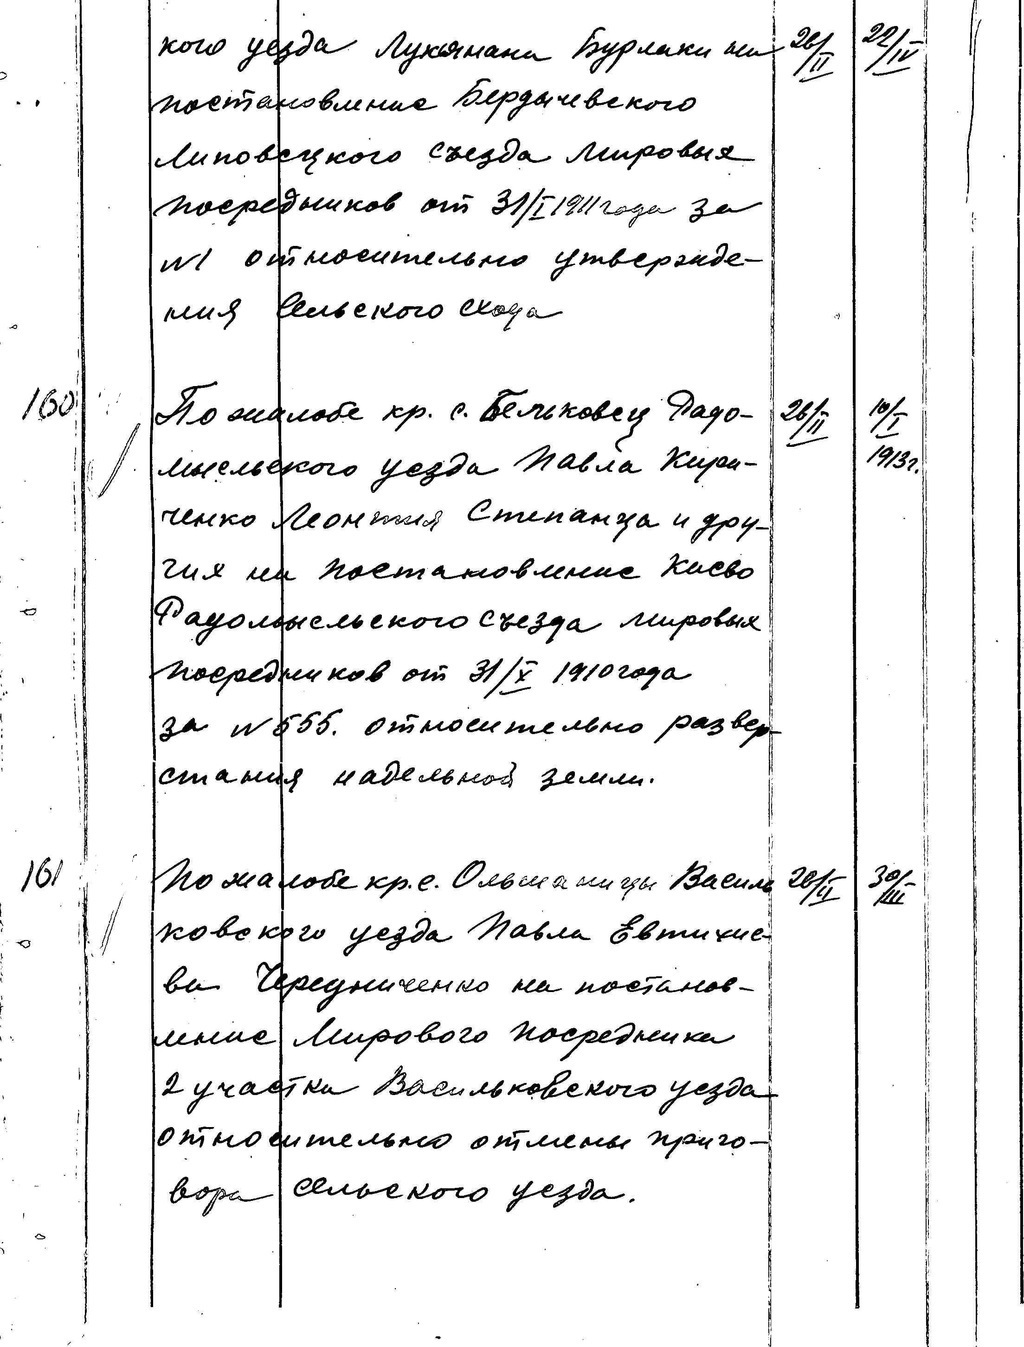 кого уезда Лукьяна Бурлаки на 26/II 22/IV
постановление Бердичевского
Липовецкого съезда мировых
посредников от 31/I 1911 года за
N1 относительно утвержде-
ния сельского схода
160 По жалобе кр. с. Бельковец Радо- 26/II 10/I
мысльского уезда Павла Кири- 1913г.
ченко Леонтия Степанца и дру-
гих на постановление Киево
Радомысльского съезда мировых
посредников от 31/X 1910 года
за N 555. относительно развер-
стания надельной земли.
161 По жалобе кр. с. Ольшаницы Василь 26/II 30/III
ковского уезда Павла Евтихие-
ва Чередниченко на постанов-
ление Мирового посредника
2 участка Васильковского уезда
относительно отмены приго-
вора сельского уезда.